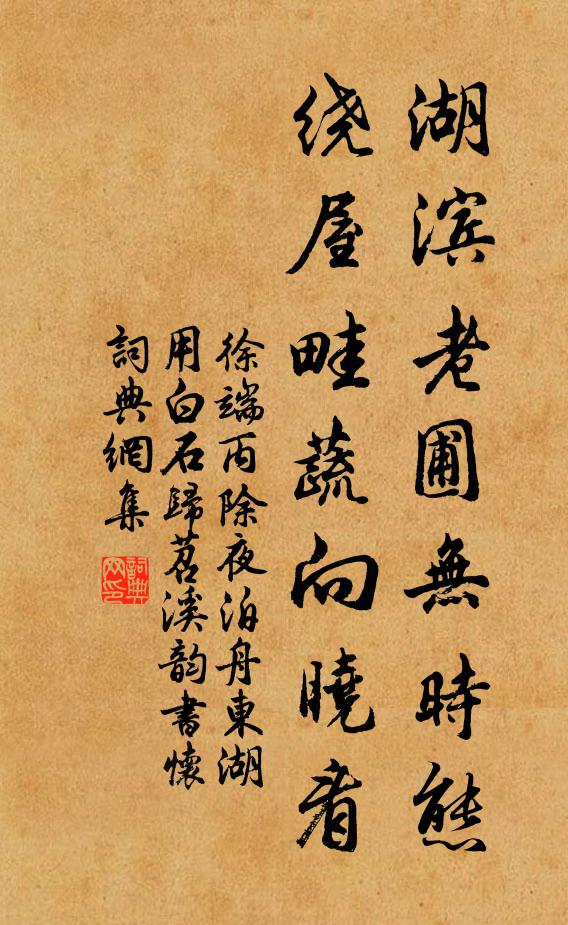 湖滨老圃無時態
绕屋畦蔬向曉看
徐端丙除夜泊舟東湖
用白石歸苕溪韵書懷
詞典網集
詞典
网印